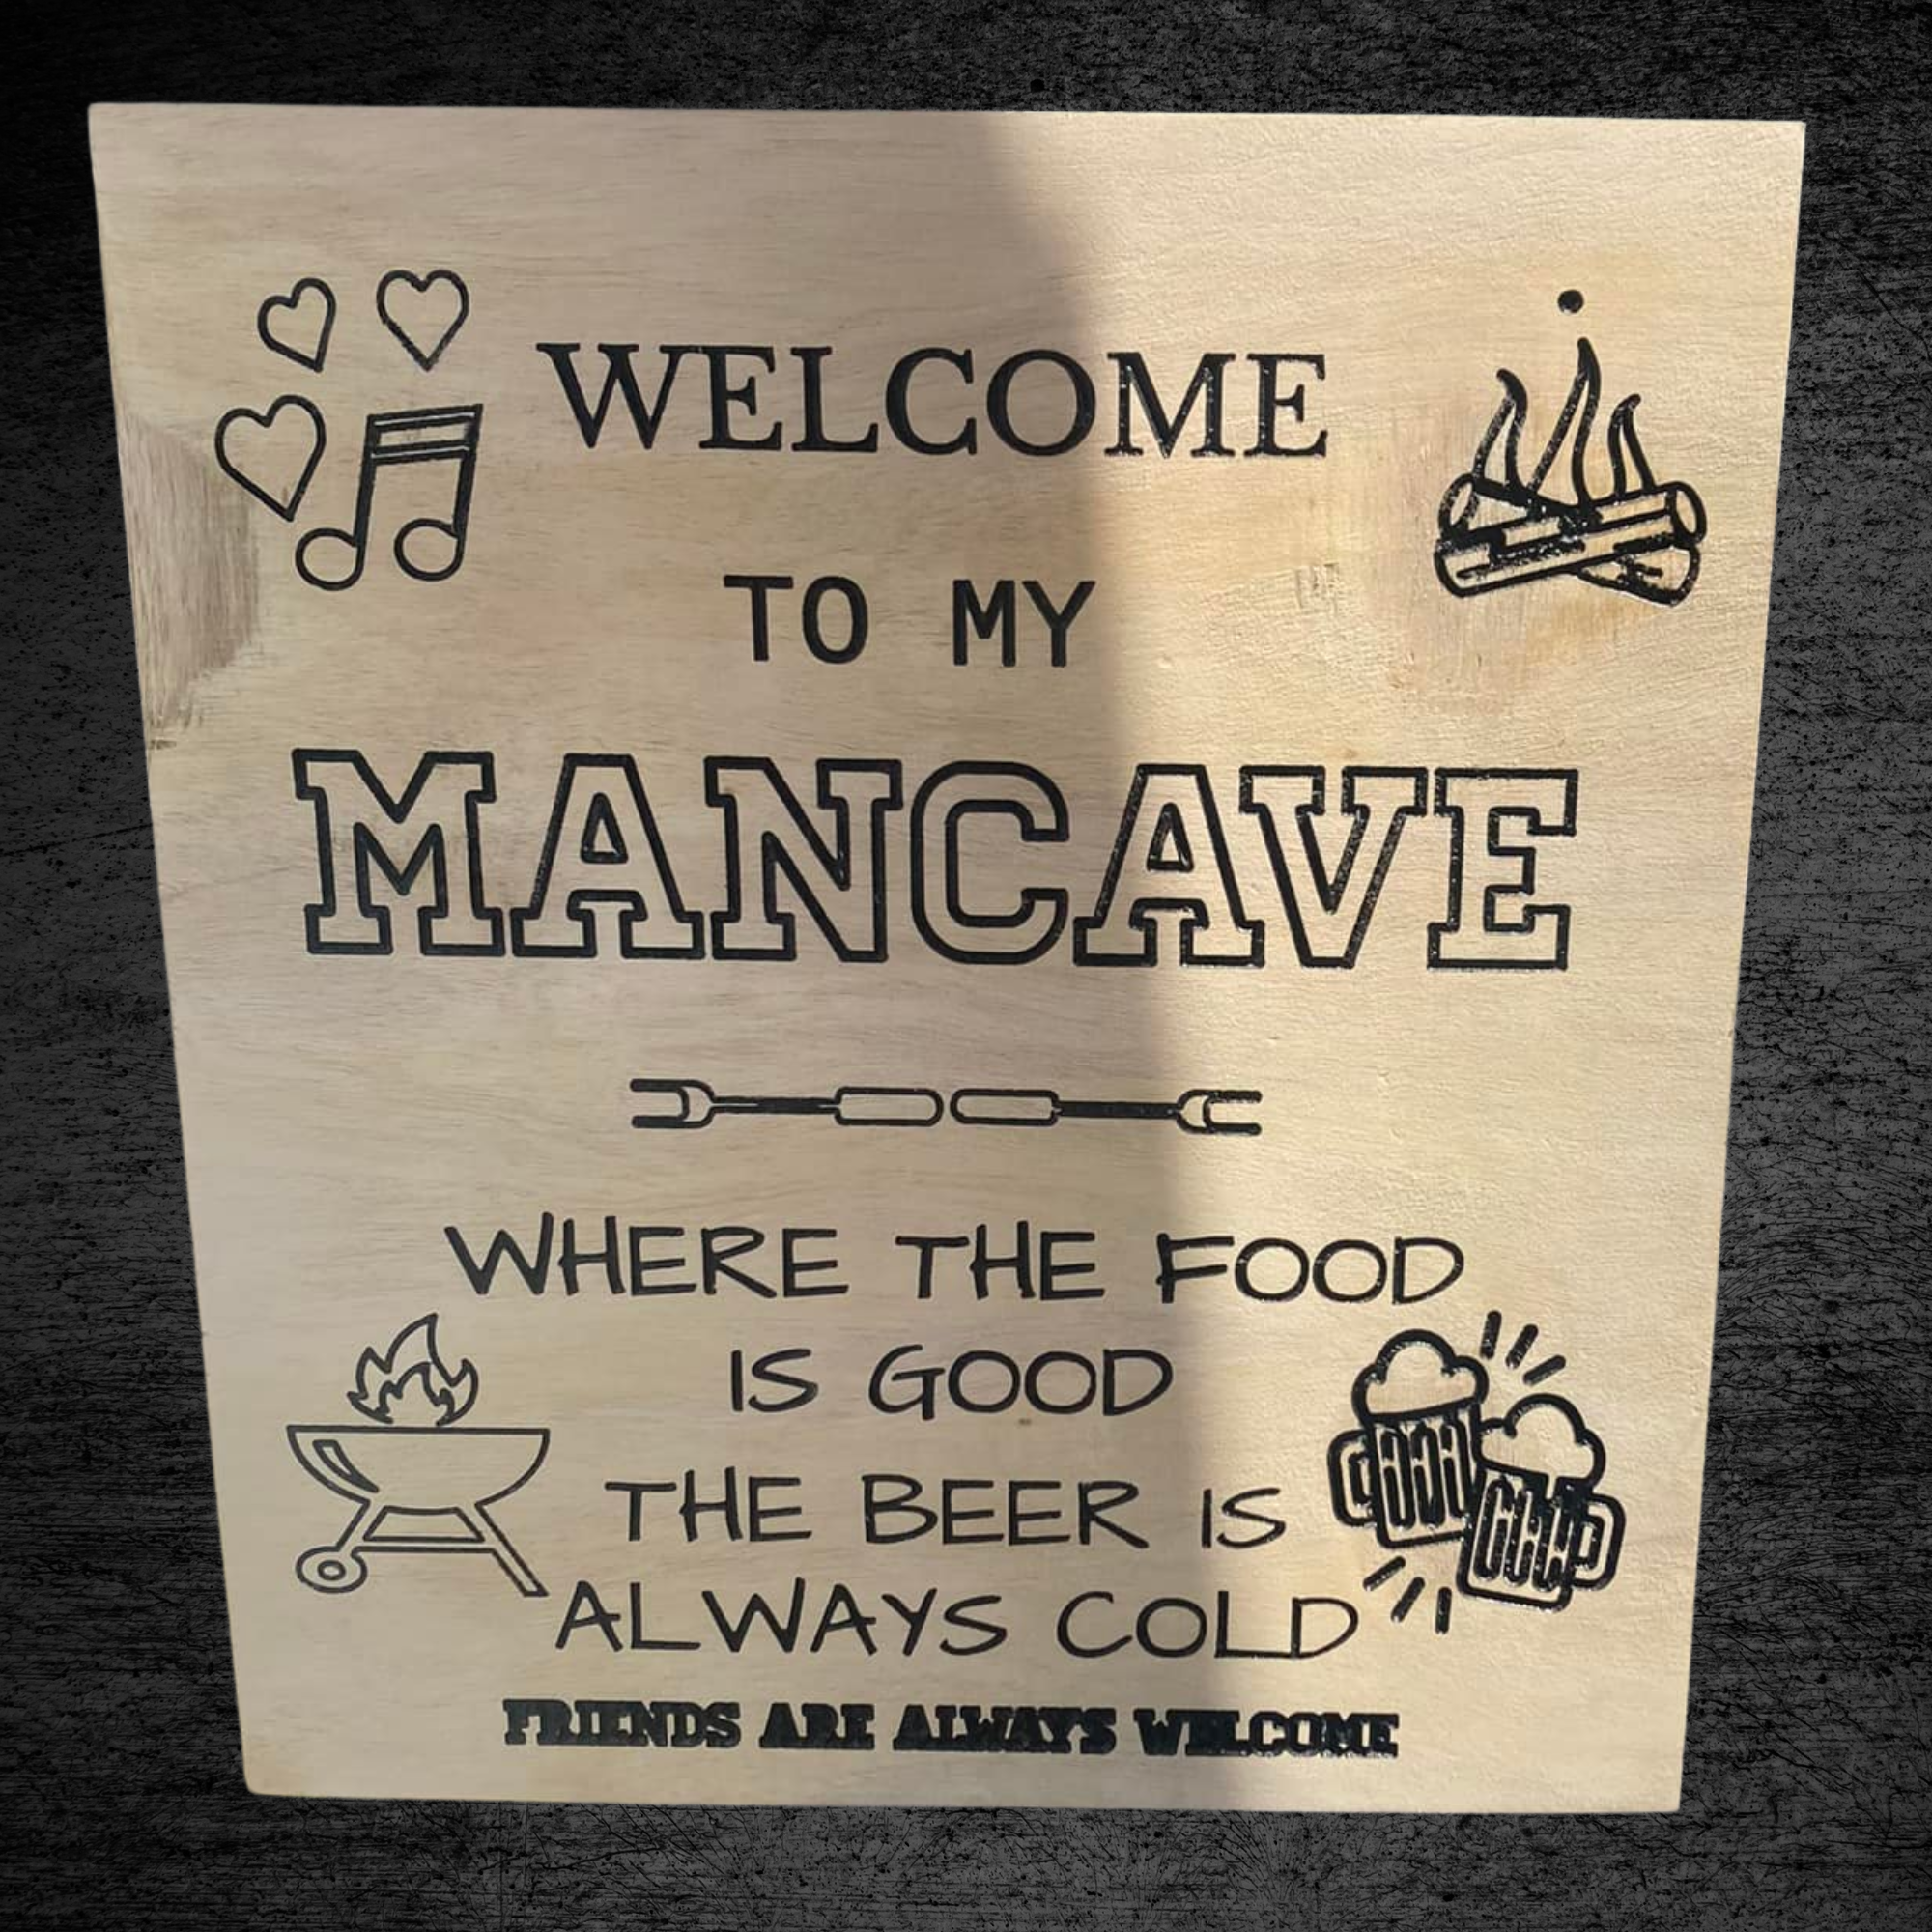 WELCOME
TO MY
MANCAVE
WHERE THE FOOD
IS GOOD
THE BEER IS
ALWAYS COLD
FRIENDS ARE ALWAYS WELCOME